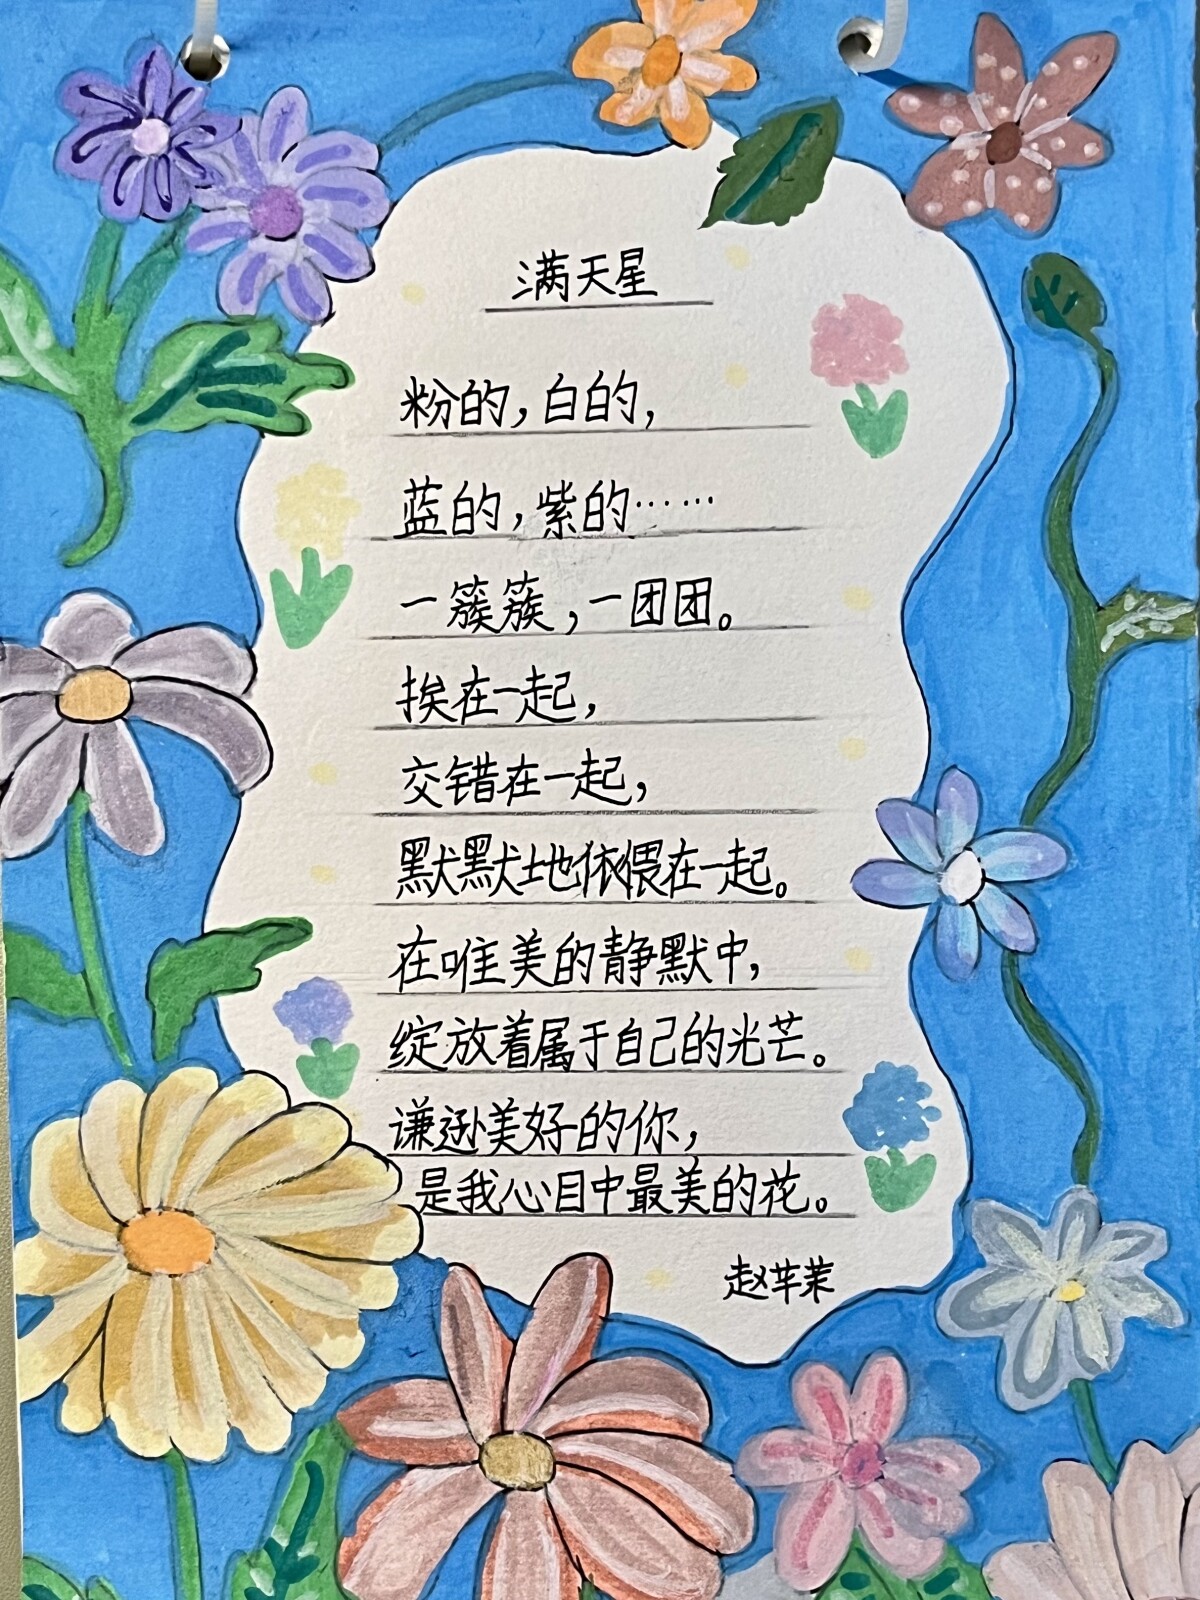 满天星
粉的，白的，
蓝的，紫的……
一簇簇，一团团。
挨在一起，
交错在一起，
默默地依偎在一起。
在唯美的静默中，
绽放着属于自己的光芒。
谦逊美好的你，
是我心目中最美的花。
赵芈茉